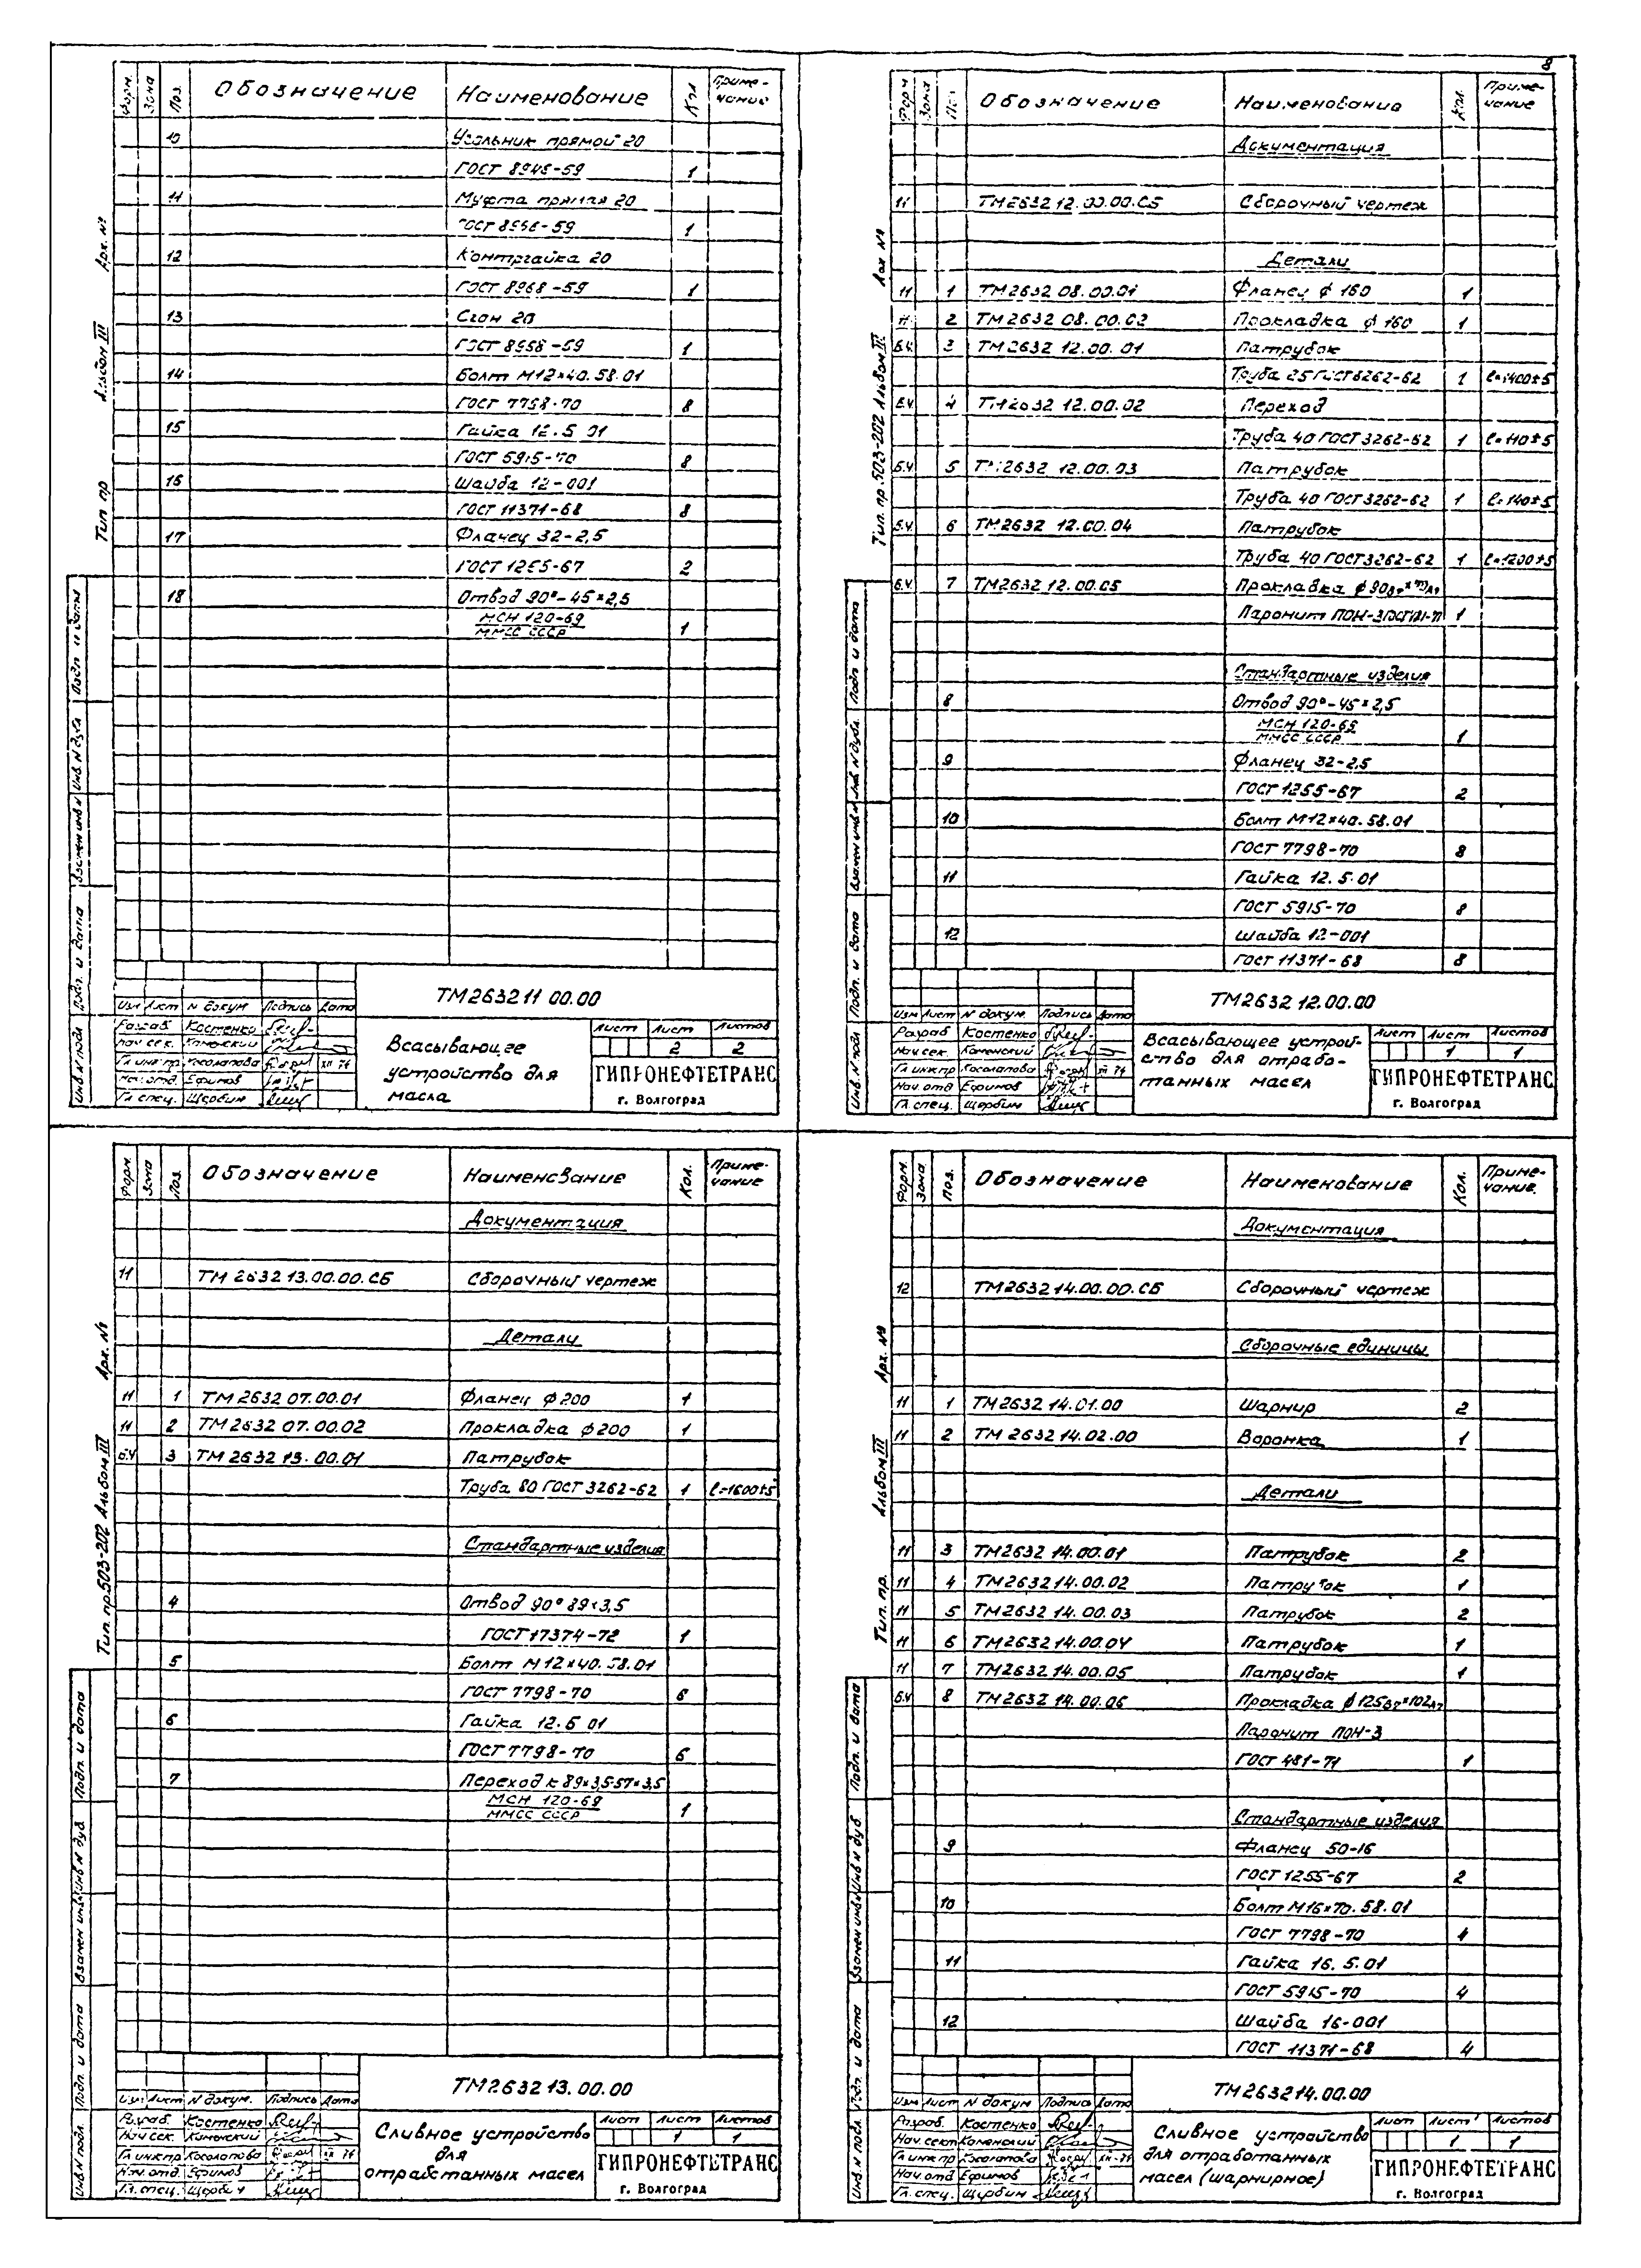 8
Форм.
Зона
Поз.
Обозначение
Наименование
Кол
Приме-
чание
10 Угольник прямой 20
ГОСТ 8946-59 1
11 Муфта прямая 20
ГОСТ 8956-59 1
12 Контргайка 20
ГОСТ 8968-59 1
13 Сгон 20
ГОСТ 8958-59 1
14 Болт М12×40.58.01
ГОСТ 7798-70 8
15 Гайка 12.5 01
ГОСТ 5915-70 8
16 Шайба 12-001
ГОСТ 11371-68 8
17 Фланец 32-2,5
ГОСТ 1255-67 2
18 Отвод 90°-45×2,5
МСН 120-69
ММСС СССР 1
Арх. №
Альбом III
Тип пр
Подп и дата
Инв. N дубл
Взамен инв N
Подп. и дата
Инв. N подл
ТМ2632 11 00.00
Изм Лист N докум Подпись Дата
Разраб Костенко
Нач сек. Каменский
Гл инж пр Косолапова XII 74
Нач. отд. Ефимов
Гл спец. Щербин
Всасывающее
устройство для
масла
Лист Лист Листов
2 2
ГИПРОНЕФТЕТРАНС
г. Волгоград
Форм
Зона
Обозначение
Наименование
Кол.
Приме-
чание
Документация
11 ТМ2632 12.00.00.СБ Сборочный чертеж
Детали
11 1 ТМ2632 08.00.01 Фланец ф 160 1
11 2 ТМ2632 08.00.02 Прокладка ф 160 1
Б.ч. 3 ТМ2632 12.00.01 Патрубок
Труба 25 ГОСТ 3262-62 1 ℓ=1400±5
Б.ч. 4 ТМ2632 12.00.02 Переход
Труба 40 ГОСТ 3262-62 1 ℓ=110±5
Б.ч 5 ТМ2632 12.00.03 Патрубок
Труба 40 ГОСТ 3262-62 1 ℓ=140±5
Б.ч. 6 ТМ2632 12.00.04 Патрубок
Труба 40 ГОСТ 3262-62 1 ℓ=1200±5
Б.ч. 7 ТМ2632 12.00.05 Прокладка ф 90
Паронит ПОН-3 ГОСТ 481-71 1
Стандартные изделия
8 Отвод 90°-45×2,5
МСН 120-69
ММСС СССР 1
9 Фланец 32-2.5
ГОСТ 1255-67 2
10 Болт М12×40.58.01
ГОСТ 7798-70 8
11 Гайка 12.5.01
ГОСТ 5915-70 8
12 Шайба 12-001
ГОСТ 11371-68 8
Тип. пр. 503-202 Альбом III
Подп и дата
Инв. N дубл.
Взамен инв N
Подп. и дата
Инв. N подл
ТМ2632 12.00.00
Изм Лист N докум. Подпись Дата
Разраб Костенко
Нач сек. Каменский
Гл инж пр Косолапова XII 74
Нач. отд Ефимов
Гл. спец. Щербин
Всасывающее устрой-
ство для отрабо-
танных масел
Лист Лист Листов
1 1
ГИПРОНЕФТЕТРАНС
г. Волгоград
Форм.
Зона
Поз.
Обозначение
Наименование
Кол.
Приме-
чание
Документация
11 ТМ 2632 13.00.00.СБ Сборочный чертеж
Детали
11 1 ТМ 2632 07.00.01 Фланец ф 200 1
11 2 ТМ 2632 07.00.02 Прокладка ф 200 1
б.ч 3 ТМ 2632 13.00.01 Патрубок
Труба 80 ГОСТ 3262-62 1 ℓ=1600±5
Стандартные изделия
4 Отвод 90° 89×3,5
ГОСТ 17374-72 1
5 Болт М12×40.58.01
ГОСТ 7798-70 6
6 Гайка 12.5 01
ГОСТ 7798-70 6
7 Переход к 89×3,5-57×3,5
МСН 120-69
ММСС СССР 1
Арх. №
Тип. пр. 503-202 Альбом III
Подп. и дата
Инв N дуб
Взамен инв N
Подп. и дата
Инв. N подл.
ТМ2632 13.00.00
Изм Лист N докум. Подпись Дата
Разраб. Костенко
Нач сек. Каменский
Гл инж пр Косолапова XII 74
Нач. отд Ефимов
Гл. спец. Щербин
Сливное устройство
для
отработанных масел
Лист Лист Листов
1 1
ГИПРОНЕФТЕТРАНС
г. Волгоград
Форм.
Зона
Поз.
Обозначение
Наименование
Кол.
Приме-
чание.
Документация
12 ТМ2632 14.00.00.СБ Сборочный чертеж
Сборочные единицы
11 1 ТМ2632 14.01.00 Шарнир 2
11 2 ТМ 2632 14.02.00 Воронка 1
Детали
11 3 ТМ2632 14.00.01 Патрубок 2
11 4 ТМ2632 14.00.02 Патрубок 1
11 5 ТМ2632 14.00.03 Патрубок 2
11 6 ТМ2632 14.00.04 Патрубок 1
11 7 ТМ2632 14.00.05 Патрубок 1
Б.ч 8 ТМ2632 14.00.06 Прокладка ф 125В7×102А7
Паронит ПОН-3
ГОСТ 481-71 1
Стандартные изделия
9 Фланец 50-16
ГОСТ 1255-67 2
10 Болт М16×70.58.01
ГОСТ 7798-70 4
11 Гайка 16.5.01
ГОСТ 5915-70 4
12 Шайба 16-001
ГОСТ 11371-68 4
Арх. №
Альбом III
Тип. пр.
Подп. и дата
Инв N дуб
Взамен инв N
Подп. и дата
Инв. N подл.
ТМ2632 14.00.00
Изм Лист N докум Подпись Дата
Разраб. Костенко
Нач. сект Каменский
Гл инж пр Косолапова XII-74
Нач. отд Ефимов
Гл. спец. Щербин
Сливное устройство
для отработанных
масел (шарнирное)
Лист Лист Листов
1 1
ГИПРОНЕФТЕТРАНС
г. Волгоград